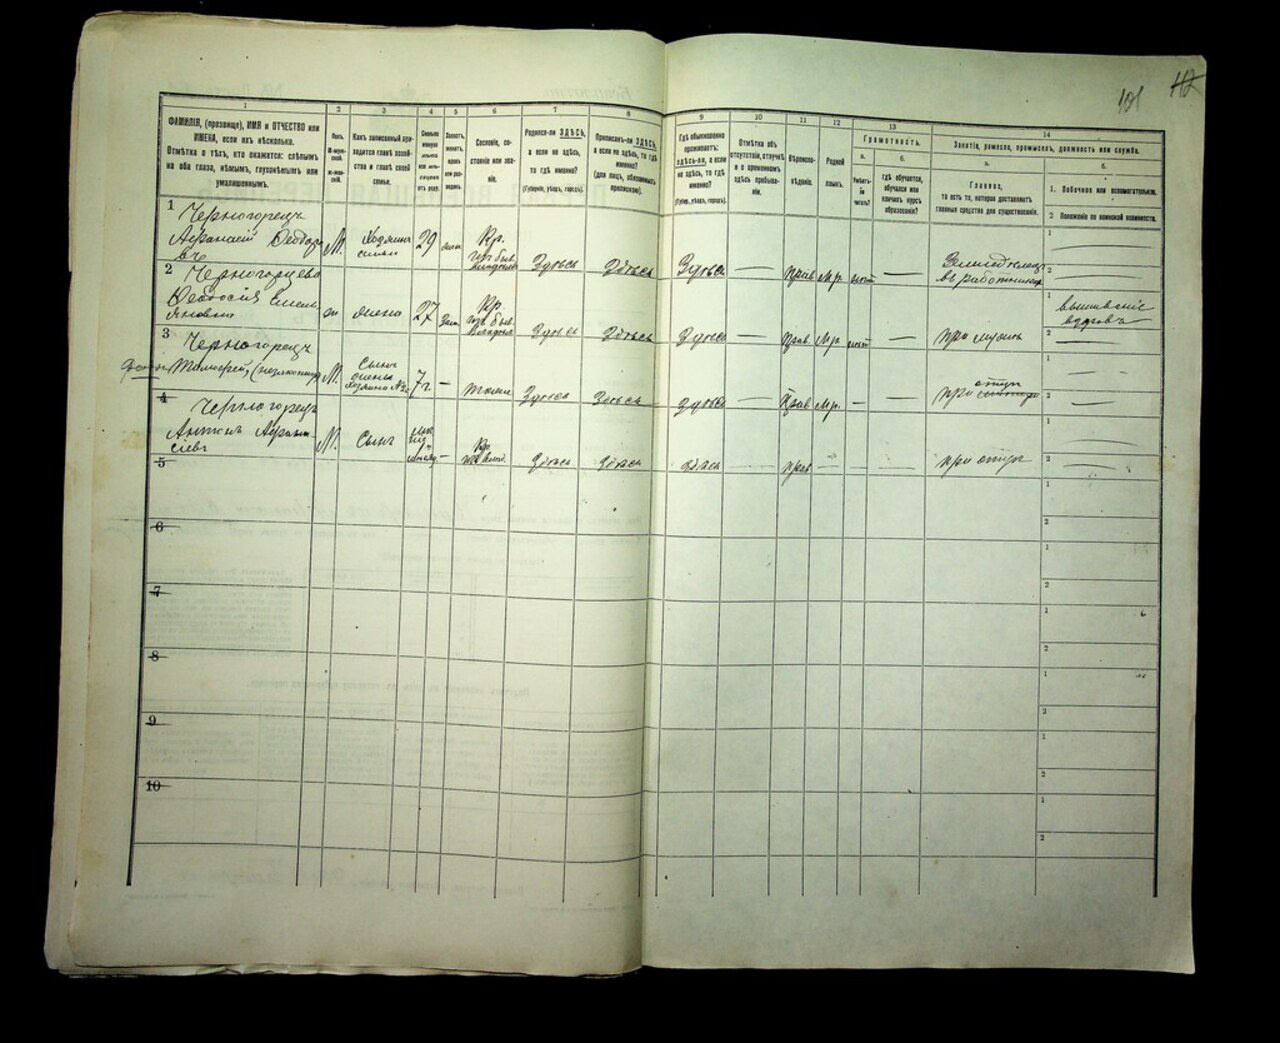 101
1
2
3
4
5
6
7
8
9
10
11
12
13
14
ФАМИЛІЯ, (прозвище), ИМЯ и ОТЧЕСТВО или
ИМЕНА, если ихъ нѣсколько.
Отмѣтка о тѣхъ, кто окажется: слѣпымъ
на оба глаза, нѣмымъ, глухонѣмымъ или
умалишеннымъ.
Полъ.
М-мужской.
Ж-женскій.
Какъ записанный приходится
главѣ хозяйства
и главѣ своей
семьи.
Сословіе, состояніе
или званіе.
Родился-ли ЗДѢСЬ,
а если не здѣсь,
то гдѣ именно?
(Губернія, уѣздъ, городъ).
Приписанъ-ли ЗДѢСЬ,
а если не здѣсь, то гдѣ
именно?
(для лицъ, обязанныхъ
припискою).
Гдѣ обыкновенно
проживаетъ:
здѣсь-ли, а если
не здѣсь, то гдѣ
именно?
(Губер., уѣздъ, городъ).
Отмѣтка объ
отсутствіи, отлучкѣ
и о временномъ
здѣсь пребываніи.
Вѣроисповѣданіе.
Родной
языкъ.
Грамотность.
а.
Умѣетъ-ли
читать?
б.
гдѣ обучается,
обучался или
кончилъ курсъ
образованія?
Занятіе, ремесло, промыселъ, должность или служба.
а.
Главное,
то есть то, которое доставляетъ
главныя средства для существованія.
б.
1. Побочное или вспомогательное.
2. Положеніе по воинской повинности.
1 Черногорецъ
Афанасій Ѳеодоровъ
М. Хозяинъ 29 Кр. Здѣсь Здѣсь Здѣсь — прав. Мр. нѣт — Земледѣлецъ
въ работникахъ
1 —
2 —
2 Черногорцева
Ѳеодосія Емельяновна
ж жена 27 Зам. Кр. Здѣсь Здѣсь Здѣсь — Прав. Мр. нѣт — при мужѣ
1
2 —
3 Черногорецъ
Тимофей,
М. Сынъ
жены
хозяина №2 7 г. — тоже Здѣсь Здѣсь Здѣсь — Прав Мр. — — при отцѣ
1 —
2 —
4 Черногорецъ
Антонъ Афанасіевъ
М. Сынъ — Кр. Здѣсь Здѣсь Здѣсь — прав — — — при отцѣ
1 —
2 —
5
1
2
6
1
2
7
1
2
8
1
2
9
1
2
10
1
2